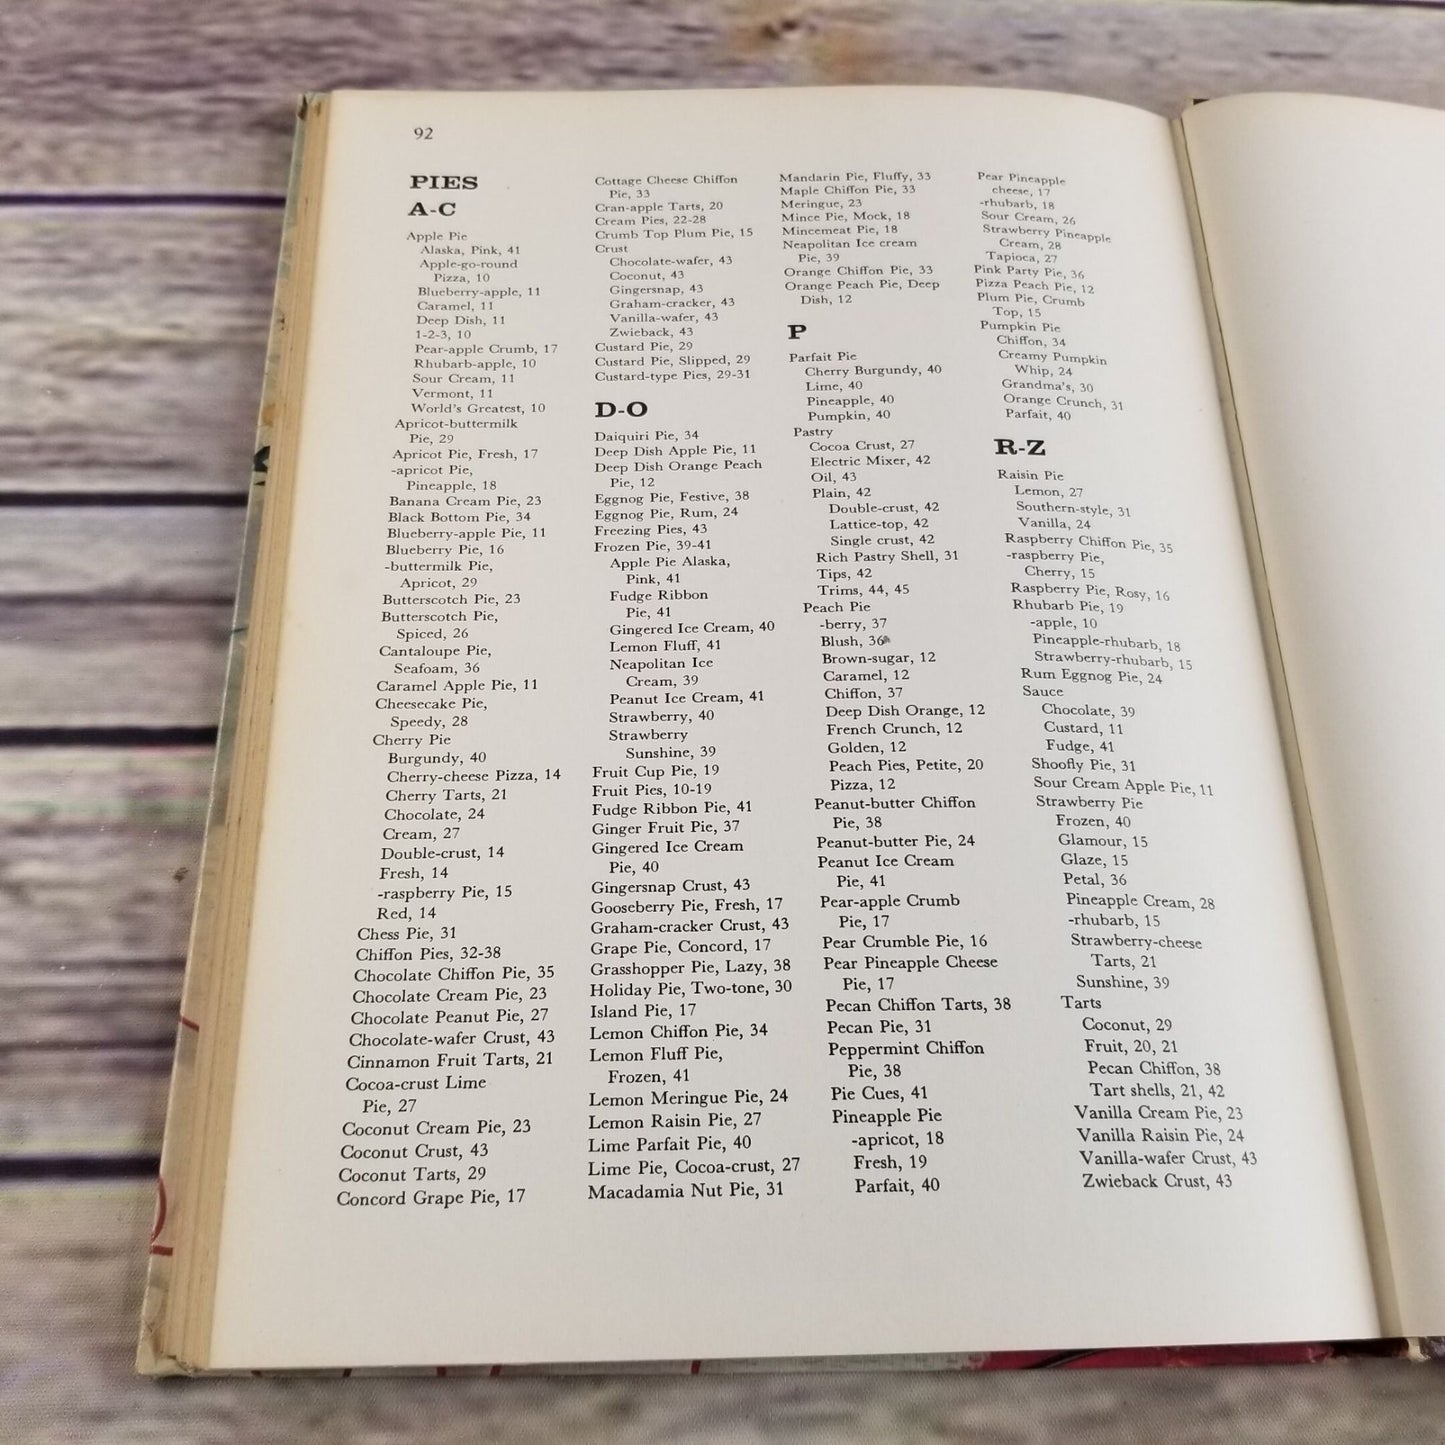 92
PIES
A-C
Apple Pie
Alaska, Pink, 41
Apple-go-round
Pizza, 10
Blueberry-apple, 11
Caramel, 11
Deep Dish, 11
1-2-3, 10
Pear-apple Crumb, 17
Rhubarb-apple, 10
Sour Cream, 11
Vermont, 11
World's Greatest, 10
Apricot-buttermilk
Pie, 29
Apricot Pie, Fresh, 17
-apricot Pie,
Pineapple, 18
Banana Cream Pie, 23
Black Bottom Pie, 34
Blueberry-apple Pie, 11
Blueberry Pie, 16
-buttermilk Pie,
Apricot, 29
Butterscotch Pie, 23
Butterscotch Pie,
Spiced, 26
Cantaloupe Pie,
Seafoam, 36
Caramel Apple Pie, 11
Cheesecake Pie,
Speedy, 28
Cherry Pie
Burgundy, 40
Cherry-cheese Pizza, 14
Cherry Tarts, 21
Chocolate, 24
Cream, 27
Double-crust, 14
Fresh, 14
-raspberry Pie, 15
Red, 14
Chess Pie, 31
Chiffon Pies, 32-38
Chocolate Chiffon Pie, 35
Chocolate Cream Pie, 23
Chocolate Peanut Pie, 27
Chocolate-wafer Crust, 43
Cinnamon Fruit Tarts, 21
Cocoa-crust Lime
Pie, 27
Coconut Cream Pie, 23
Coconut Crust, 43
Coconut Tarts, 29
Concord Grape Pie, 17
Cottage Cheese Chiffon
Pie, 33
Cran-apple Tarts, 20
Cream Pies, 22-28
Crumb Top Plum Pie, 15
Crust
Chocolate-wafer, 43
Coconut, 43
Gingersnap, 43
Graham-cracker, 43
Vanilla-wafer, 43
Zwieback, 43
Custard Pie, 29
Custard Pie, Slipped, 29
Custard-type Pies, 29-31
D-O
Daiquiri Pie, 34
Deep Dish Apple Pie, 11
Deep Dish Orange Peach
Pie, 12
Eggnog Pie, Festive, 38
Eggnog Pie, Rum, 24
Freezing Pies, 43
Frozen Pie, 39-41
Apple Pie Alaska,
Pink, 41
Fudge Ribbon
Pie, 41
Gingered Ice Cream, 40
Lemon Fluff, 41
Neapolitan Ice
Cream, 39
Peanut Ice Cream, 41
Strawberry, 40
Strawberry
Sunshine, 39
Fruit Cup Pie, 19
Fruit Pies, 10-19
Fudge Ribbon Pie, 41
Ginger Fruit Pie, 37
Gingered Ice Cream
Pie, 40
Gingersnap Crust, 43
Gooseberry Pie, Fresh, 17
Graham-cracker Crust, 43
Grape Pie, Concord, 17
Grasshopper Pie, Lazy, 38
Holiday Pie, Two-tone, 30
Island Pie, 17
Lemon Chiffon Pie, 34
Lemon Fluff Pie,
Frozen, 41
Lemon Meringue Pie, 24
Lemon Raisin Pie, 27
Lime Parfait Pie, 40
Lime Pie, Cocoa-crust, 27
Macadamia Nut Pie, 31
Mandarin Pie, Fluffy, 33
Maple Chiffon Pie, 33
Meringue, 23
Mince Pie, Mock, 18
Mincemeat Pie, 18
Neapolitan Ice cream
Pie, 39
Orange Chiffon Pie, 33
Orange Peach Pie, Deep
Dish, 12
P
Parfait Pie
Cherry Burgundy, 40
Lime, 40
Pineapple, 40
Pumpkin, 40
Pastry
Cocoa Crust, 27
Electric Mixer, 42
Oil, 43
Plain, 42
Double-crust, 42
Lattice-top, 42
Single crust, 42
Rich Pastry Shell, 31
Tips, 42
Trims, 44, 45
Peach Pie
-berry, 37
Blush, 36
Brown-sugar, 12
Caramel, 12
Chiffon, 37
Deep Dish Orange, 12
French Crunch, 12
Golden, 12
Peach Pies, Petite, 20
Pizza, 12
Peanut-butter Chiffon
Pie, 38
Peanut-butter Pie, 24
Peanut Ice Cream
Pie, 41
Pear-apple Crumb
Pie, 17
Pear Crumble Pie, 16
Pear Pineapple Cheese
Pie, 17
Pecan Chiffon Tarts, 38
Pecan Pie, 31
Peppermint Chiffon
Pie, 38
Pie Cues, 41
Pineapple Pie
-apricot, 18
Fresh, 19
Parfait, 40
Pear Pineapple
cheese, 17
-rhubarb, 18
Sour Cream, 26
Strawberry Pineapple
Cream, 28
Tapioca, 27
Pink Party Pie, 36
Pizza Peach Pie, 12
Plum Pie, Crumb
Top, 15
Pumpkin Pie
Chiffon, 34
Creamy Pumpkin
Whip, 24
Grandma's, 30
Orange Crunch, 31
Parfait, 40
R-Z
Raisin Pie
Lemon, 27
Southern-style, 31
Vanilla, 24
Raspberry Chiffon Pie, 35
-raspberry Pie,
Cherry, 15
Raspberry Pie, Rosy, 16
Rhubarb Pie, 19
-apple, 10
Pineapple-rhubarb, 18
Strawberry-rhubarb, 15
Rum Eggnog Pie, 24
Sauce
Chocolate, 39
Custard, 11
Fudge, 41
Shoofly Pie, 31
Sour Cream Apple Pie, 11
Strawberry Pie
Frozen, 40
Glamour, 15
Glaze, 15
Petal, 36
Pineapple Cream, 28
-rhubarb, 15
Strawberry-cheese
Tarts, 21
Sunshine, 39
Tarts
Coconut, 29
Fruit, 20, 21
Pecan Chiffon, 38
Tart shells, 21, 42
Vanilla Cream Pie, 23
Vanilla Raisin Pie, 24
Vanilla-wafer Crust, 43
Zwieback Crust, 43